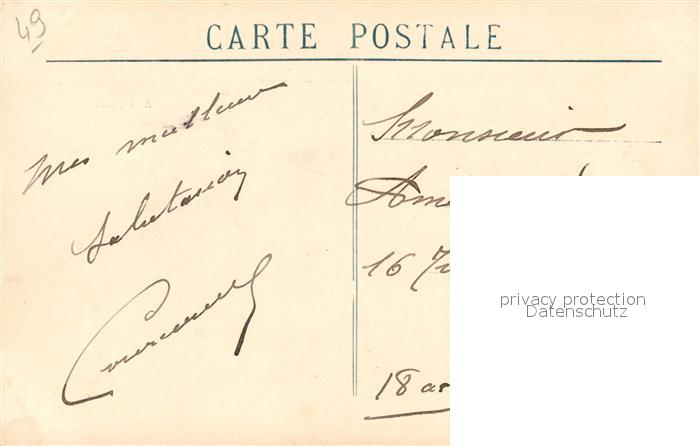 49
CARTE POSTALE
Mes meilleures
Salutations
Monsieur
Am
16
18
privacy protection
Datenschutz